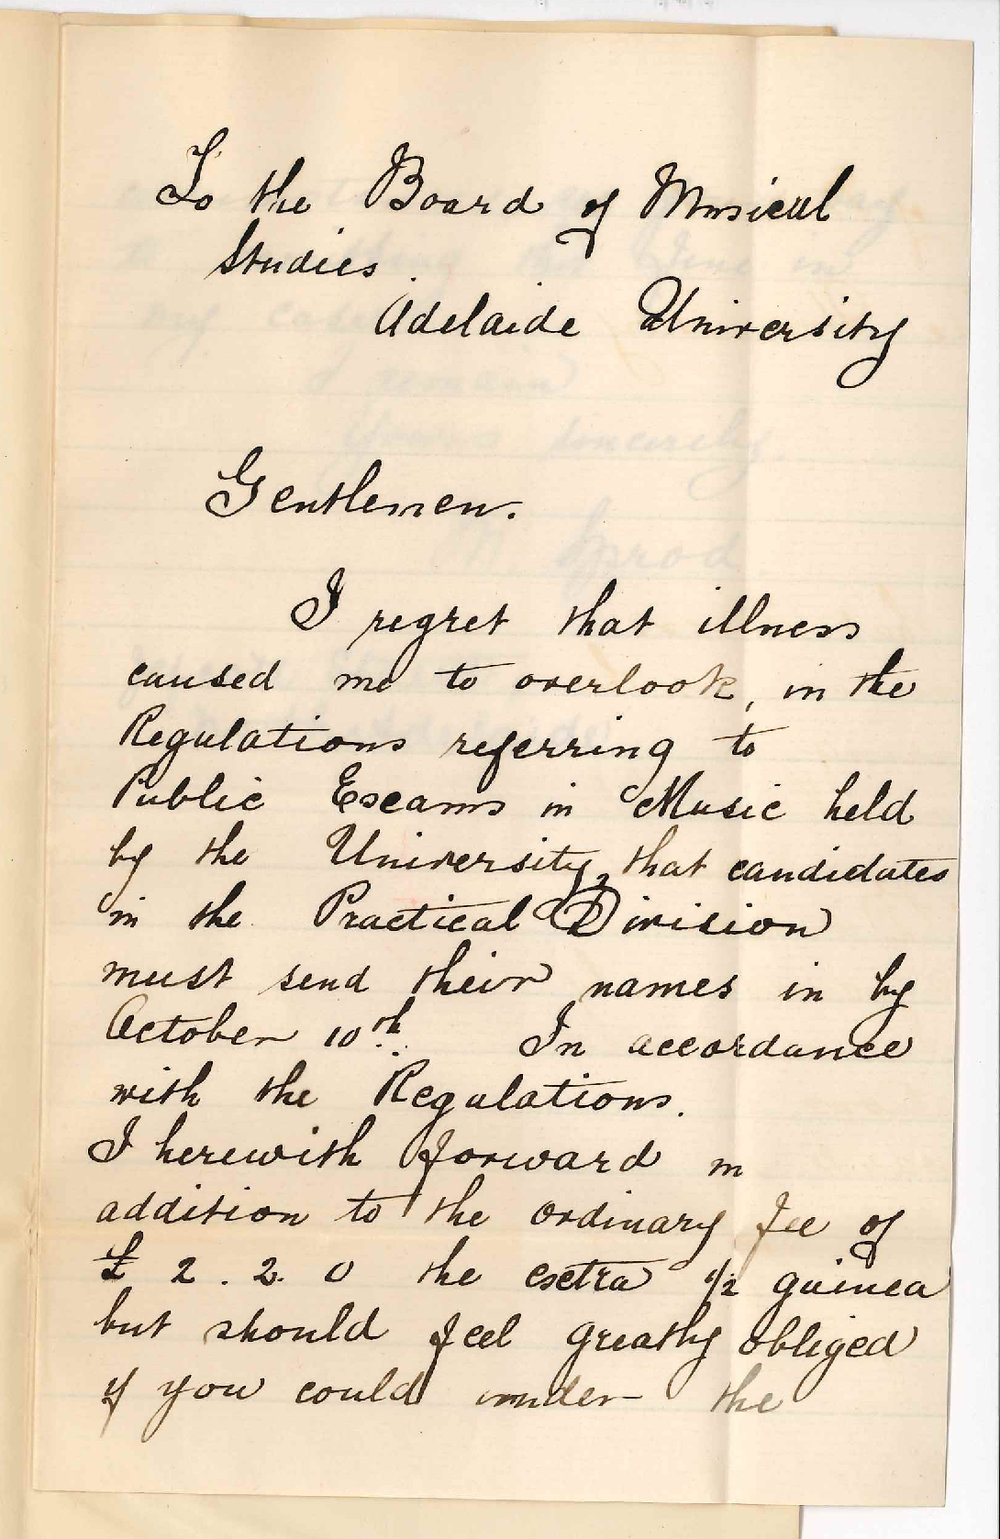 To the Board of Musical
Studies.
Adelaide University
Gentlemen.
I regret that illness
caused me to overlook, in the
Regulations referring to
Public Exams in Music held
by the University, that candidates
in the Practical Division
must send their names in by
October 10th. In accordance
with the Regulations.
I herewith forward in
addition to the ordinary fee of
£ 2. 2. 0 the extra 1/2 guinea
but should feel greatly obliged
if you could under the